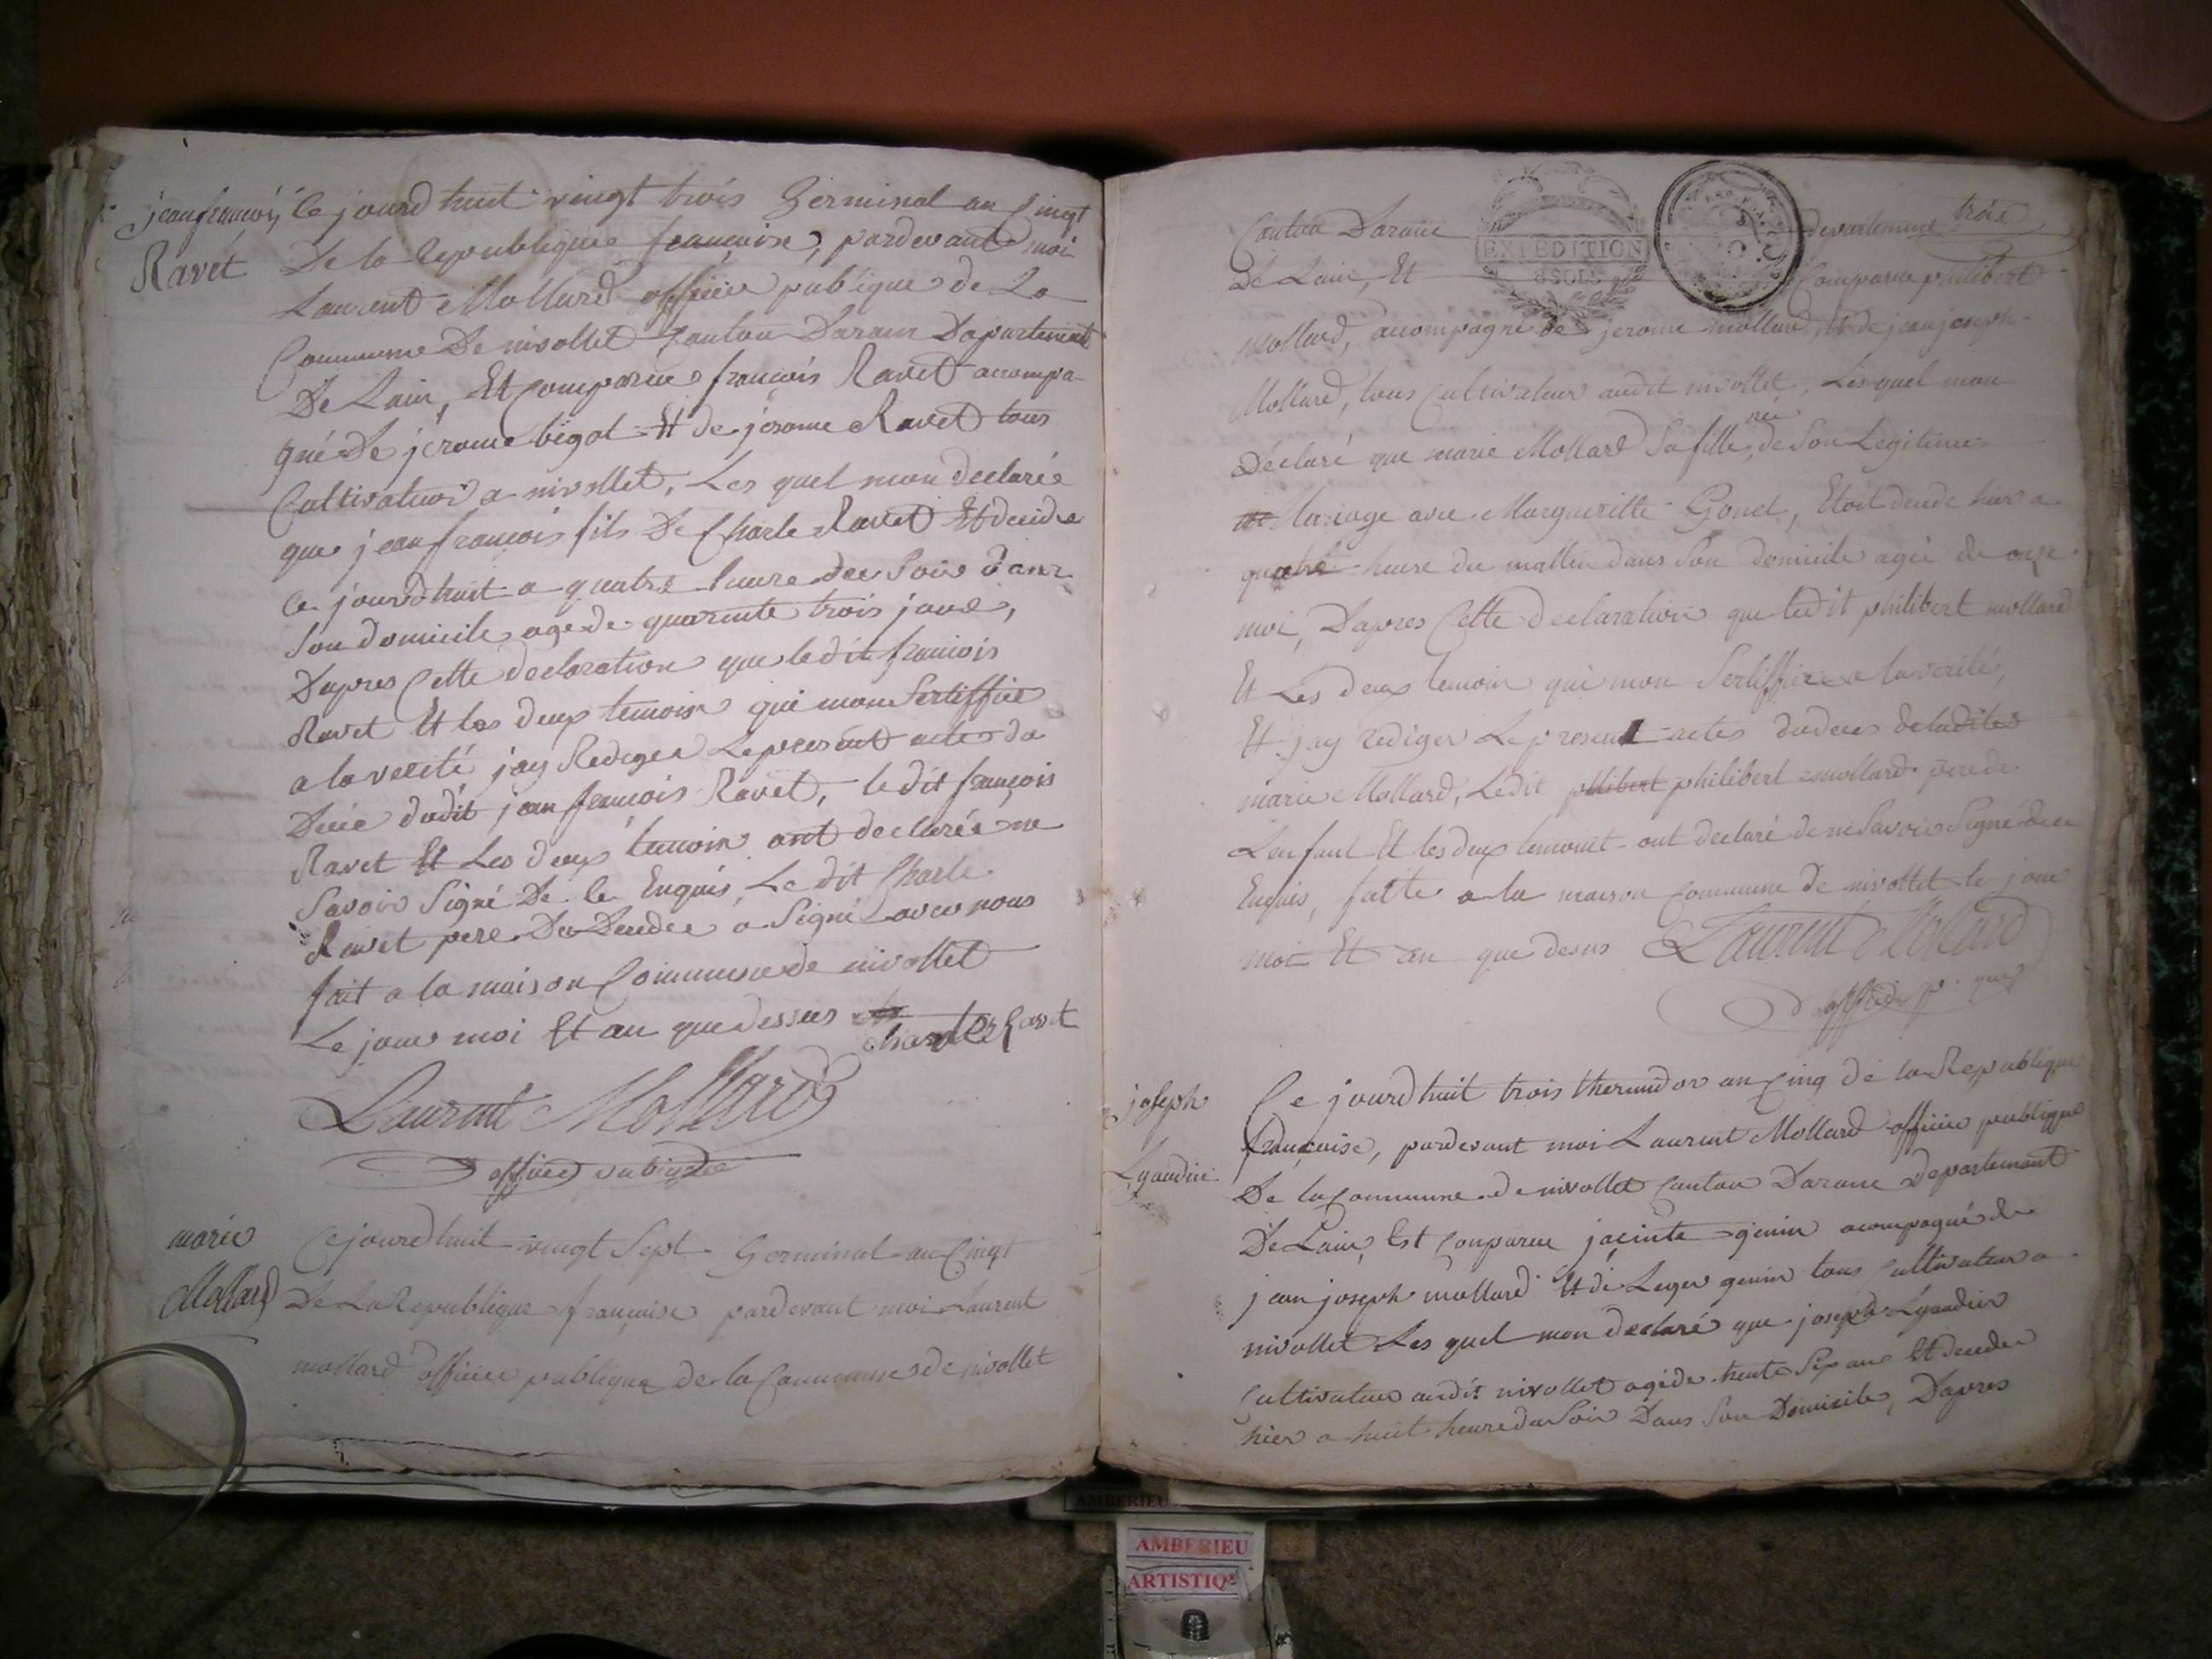 jean françois
Ravet
Ce jourdhuit vingt trois Germinal an Cinqt
De la Republique françoise, pardevant moi
Laurent Mollard officier publique de La
Commune De nivollet Canton Daran Departement
De Lain, Et Comparue françois Ravet acompa-
gné De jerome bigot Et de jerome Ravet tous
Cultivateur a nivollet, Les quel mon declarée
que jean francois fils De Charle Ravet Et decidé
ce jourdhuit a quatre heure du Soir dans
Son domicile age de quarente trois jours,
Dapres Cette declaration que ledit francois
Ravet Et les deux temoin qui mon Sertiffiee
a la verité jay Redigee Le present acte de
Décè dudit jean françois Ravet, le dit françois
Ravet Et Les deux temoin ont declarée ne
Savoir Signé De le Enquis, Le dit Charle
Ravet pere Du Decedee a Signé avec nous
fait a la maison Commune de nivollet
Le jour moi Et an que dessus Charle Ravet
Laurent Mollard
officier publique
marie
Mollard
Ce jourdhuit vingt Sept Germinal an Cinqt
De La Republique françoise pardevant moi Laurent
mollard officier publique de la Commune de nivollet
trois
Canton Daranc departement
De Lain, Et Comparue philibert
EXPEDITION
8 SOLS
mollard, acompagné de jerome mollard, Et de jean joseph
Mollard, tous Cultivateur audit nivollet, Les quel mon
Declaré que marie Mollard Sa fille née de Son Legitime
Mariage avec Margueritte Gonet, Etoit decede hier a
quatre heure du mattin dans Son domicile agée de onze
moi, Dapres Cette declaration que ledit philibert mollard
Et Les deux temoin qui mon Sertiffiee a la verité,
Et jay rediger Le present actes du deces de ladite
marie Mollard, Ledit philibert philibert mollard pere de
Lenfant Et les deux temoint ont declaré de ne Savoir Signé de ce
Enquis, faitte a la maison Commune de nivollet le jour
moi Et an que desus Laurent Mollard
joseph
Lyaudin
Ce jourdhuit trois thermidor an Cinq de la Republique
françoise, pardevant moi Laurent Mollard officier publique
De la Commune de nivollet Canton Daranc Departemant
De Lain, Est Comparue jacinte genin acompagné de
jean joseph mollard Et de Leger genin tous Cultivateur a
nivollet Les quel mon declaré que joseph Lyaudin
Cultivateur audit nivollet agé de trente Six ans Et decedee
hier a huit heure du Soir Dans Son Domicile, Dapres
AMBERIEU
AMBERIEU
ARTISTIQ